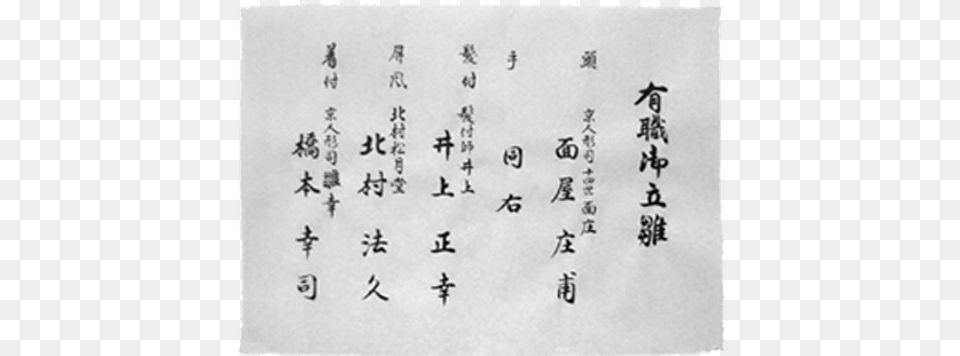 有職御立雛
頭 京人形司十四世面庄
面屋庄甫
手
同右
髪付 髪付師井上
井上正幸
屏風 北村松月堂
北村法久
着付 京人形司雛幸
橋本幸司